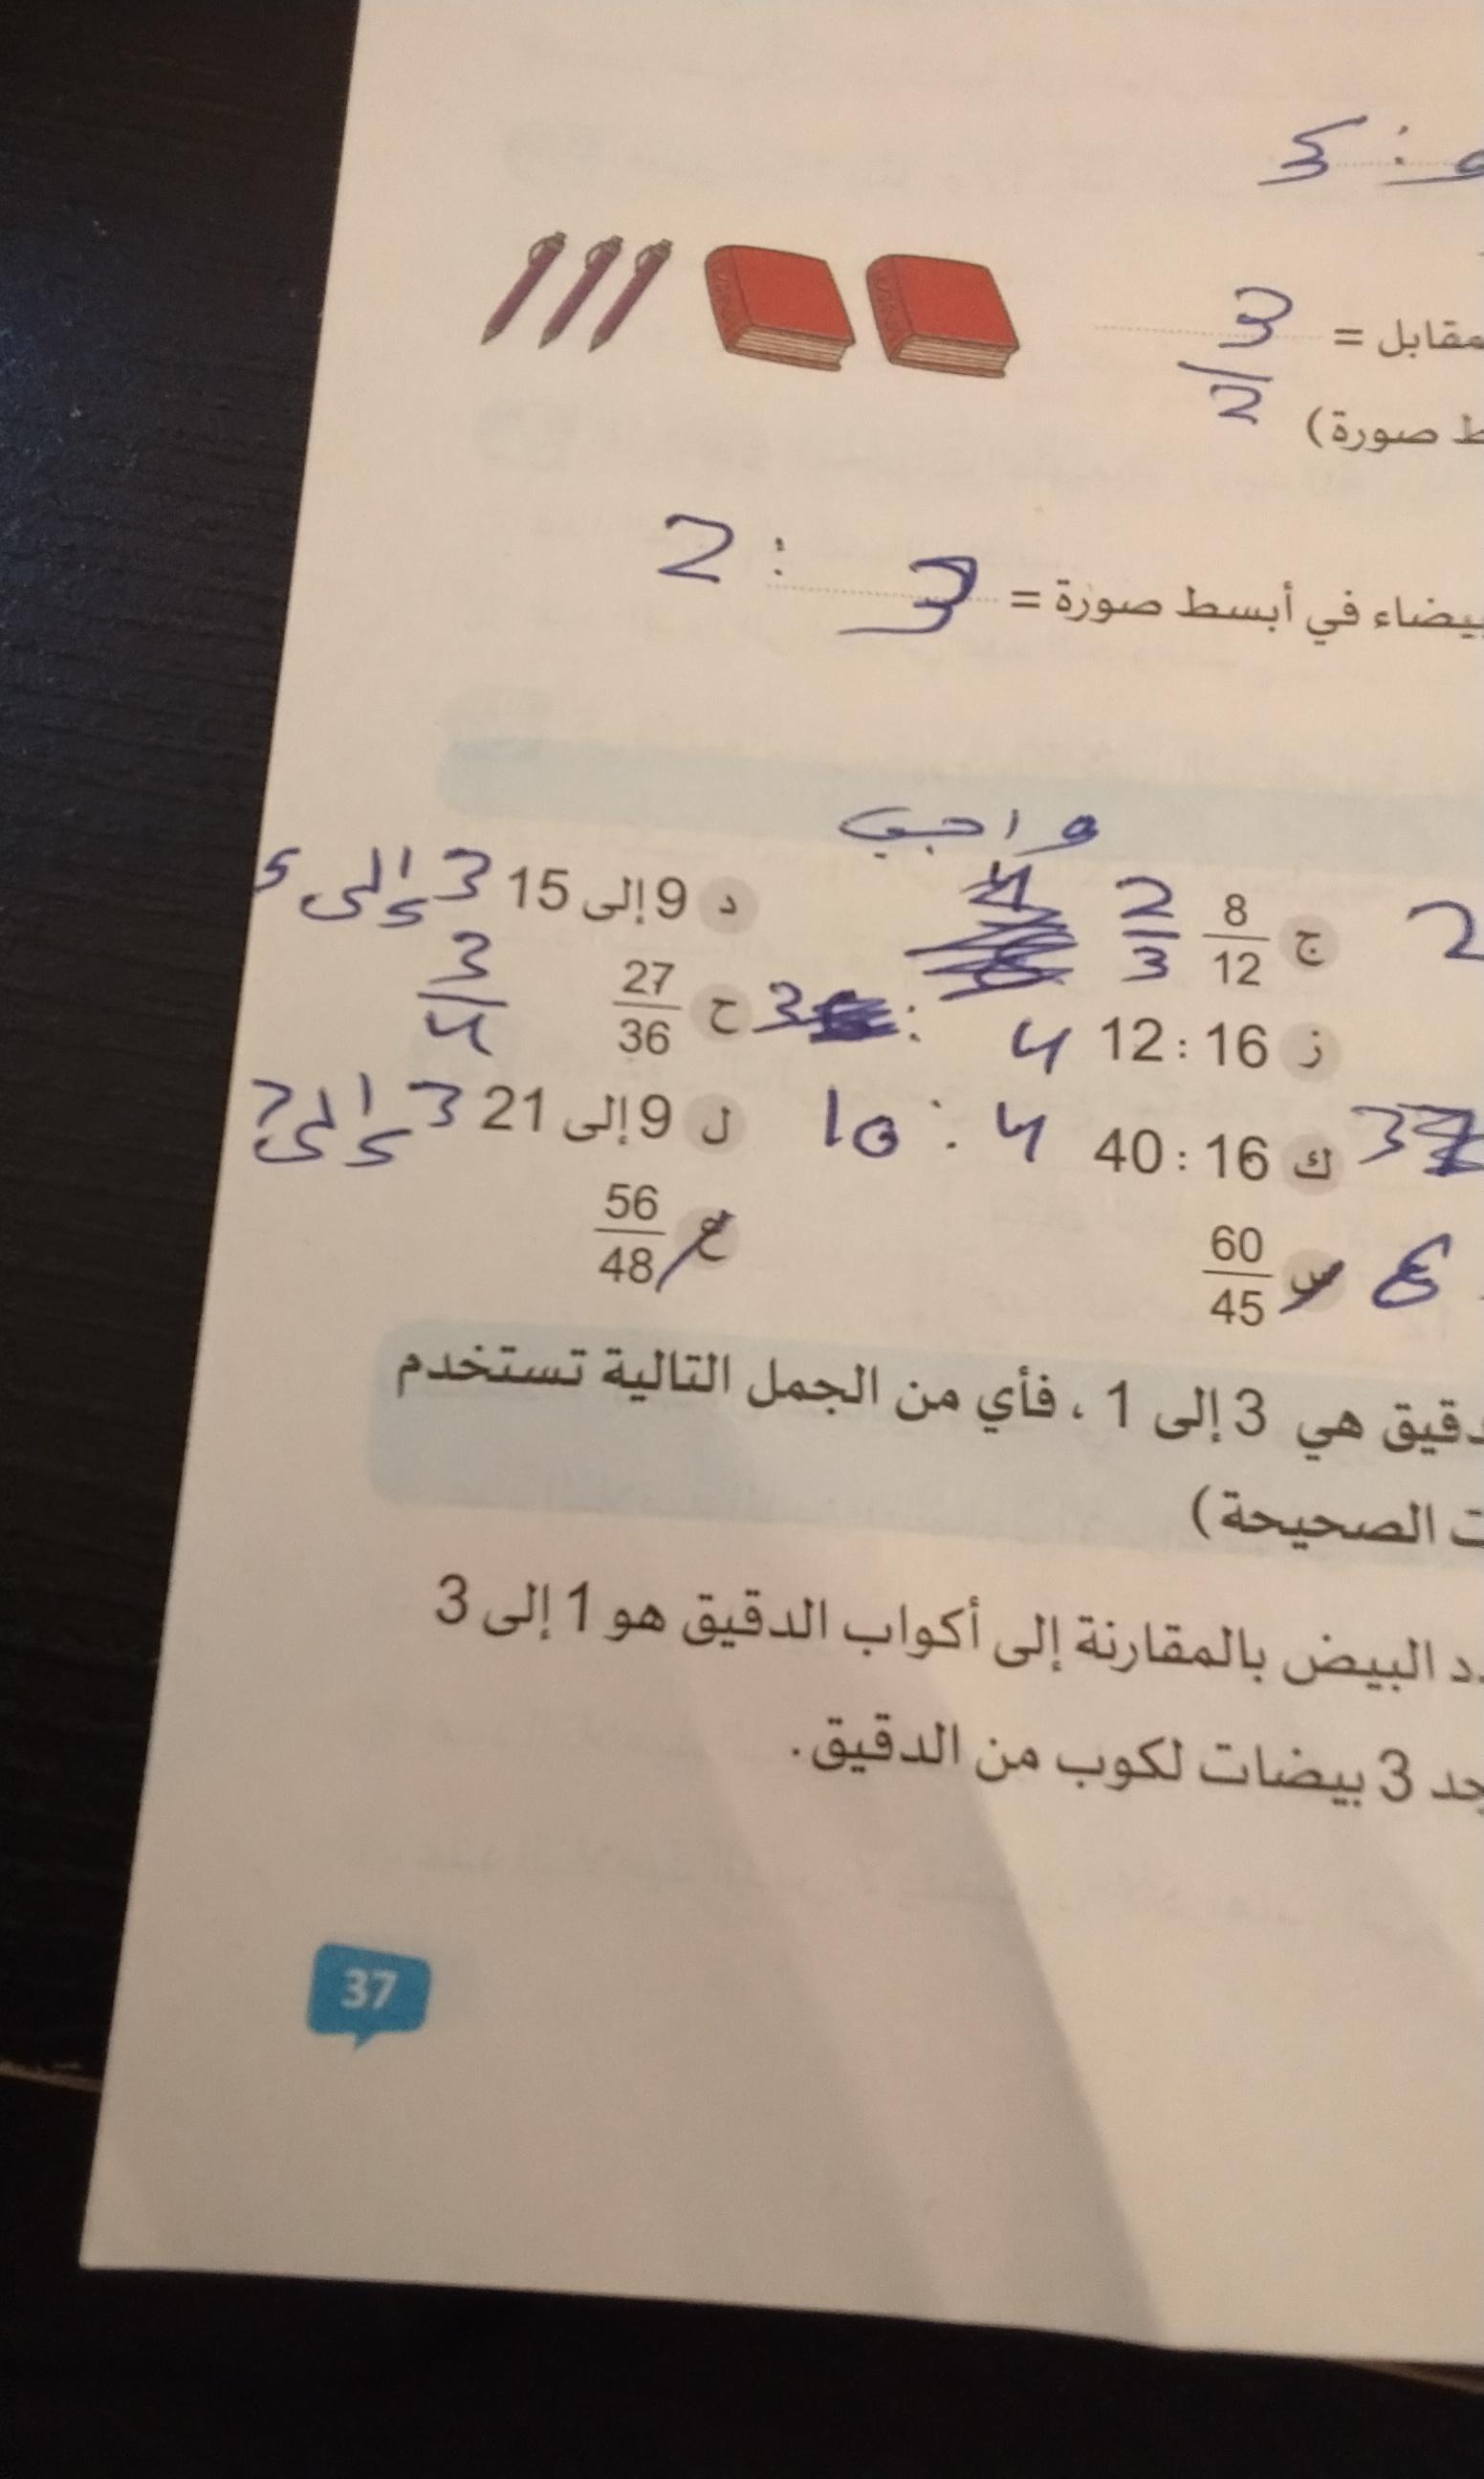 5 :
مقابل = 3/2
صورة)
بيضاء في أبسط صورة = 3 : 2
واجب
2 ج 8/12 2/3 د 9 إلى 15 3 إلى 5
ز 16 : 12 4 : 3 ح 27/36 3/4
37 ك 16 : 40 4 : 10 ل 9 إلى 21 3 إلى 7
س 60/45 ع 56/48
دقيق هي 3 إلى 1 ، فأي من الجمل التالية تستخدم
الصحيحة)
البيض بالمقارنة إلى أكواب الدقيق هو 1 إلى 3
3 بيضات لكوب من الدقيق.
37